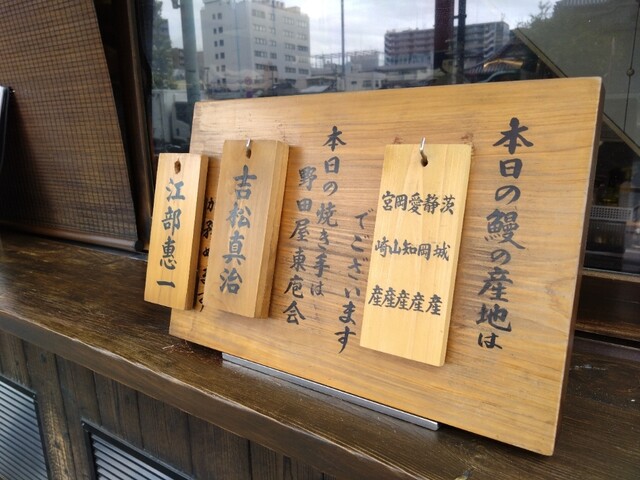 本日の鰻の産地は
茨城産
静岡産
愛知産
岡山産
宮崎産
でございます
本日の焼き手は
野田屋東庖会
吉松真治
江部恵一